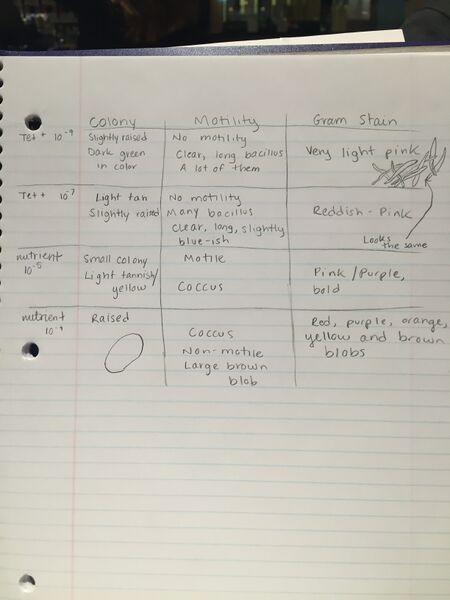 Colony Motility Gram Stain
Tet + 10⁻⁹
Slightly raised
Dark green
in color
No motility
Clear, long bacillus
A lot of them
Very light pink
Tet + 10⁻⁷
Light tan
Slightly raised
No motility
Many bacillus
Clear, long, slightly
blue-ish
Reddish-Pink
Looks
the same
nutrient
10⁻⁵
Small colony
Light tannish/
yellow
Motile
Coccus
Pink/Purple,
bold
nutrient
Raised
Coccus
Non-motile
Large brown
blob
Red, purple, orange,
yellow and brown
blobs